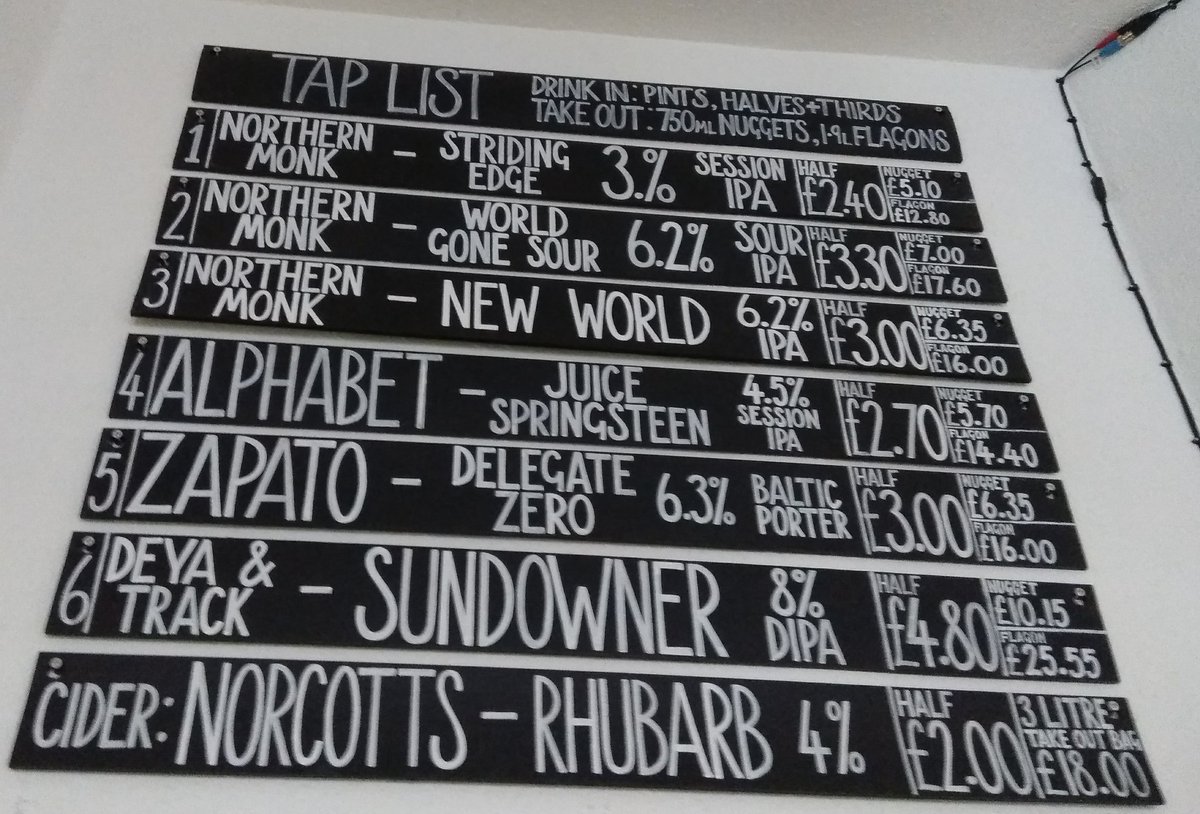 TAP LIST
DRINK IN: PINTS, HALVES + THIRDS
TAKE OUT: 750ML NUGGETS, 1.9L FLAGONS
1 NORTHERN MONK – STRIDING EDGE 3.% SESSION IPA HALF £2.40 NUGGET £5.10 FLAGON £12.80
2 NORTHERN MONK – WORLD GONE SOUR 6.2% SOUR IPA HALF £3.30 NUGGET £7.00 FLAGON £17.60
3 NORTHERN MONK – NEW WORLD 6.2% IPA HALF £3.00 NUGGET £6.35 FLAGON £16.00
4 ALPHABET – JUICE SPRINGSTEEN 4.5% SESSION IPA HALF £2.70 NUGGET £5.70 FLAGON £14.40
5 ZAPATO – DELEGATE ZERO 6.3% BALTIC PORTER HALF £3.00 NUGGET £6.35 FLAGON £16.00
6 DEYA & TRACK – SUNDOWNER 8% DIPA HALF £4.80 NUGGET £10.15 FLAGON £25.55
CIDER: NORCOTTS – RHUBARB 4% HALF £2.00 3 LITRE TAKE OUT BAG £18.00